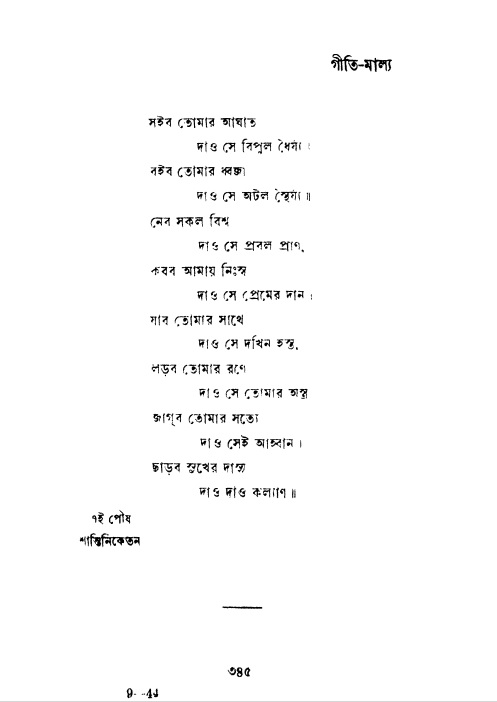 গীতি-মাল্য
সইব তোমার আঘাত
দাও সে বিপুল ধৈর্য্য।
বইব তোমার ধ্বজা
দাও সে অটল স্থৈর্য্য॥
নেব সকল বিশ্ব
দাও সে প্রবল প্রাণ,
করব আমায় নিঃস্ব
দাও সে প্রেমের দান।
যাব তোমার সাথে
দাও সে দখিন হস্ত,
লড়ব তোমার রণে
দাও সে তোমার অস্ত্র
জাগ্‌ব তোমার সত্যে
দাও সেই আহ্বান।
ছাড়ব সুখের দাস্য
দাও দাও কল্যাণ॥
৭ই পৌষ
শান্তিনিকেতন
৩৪৫